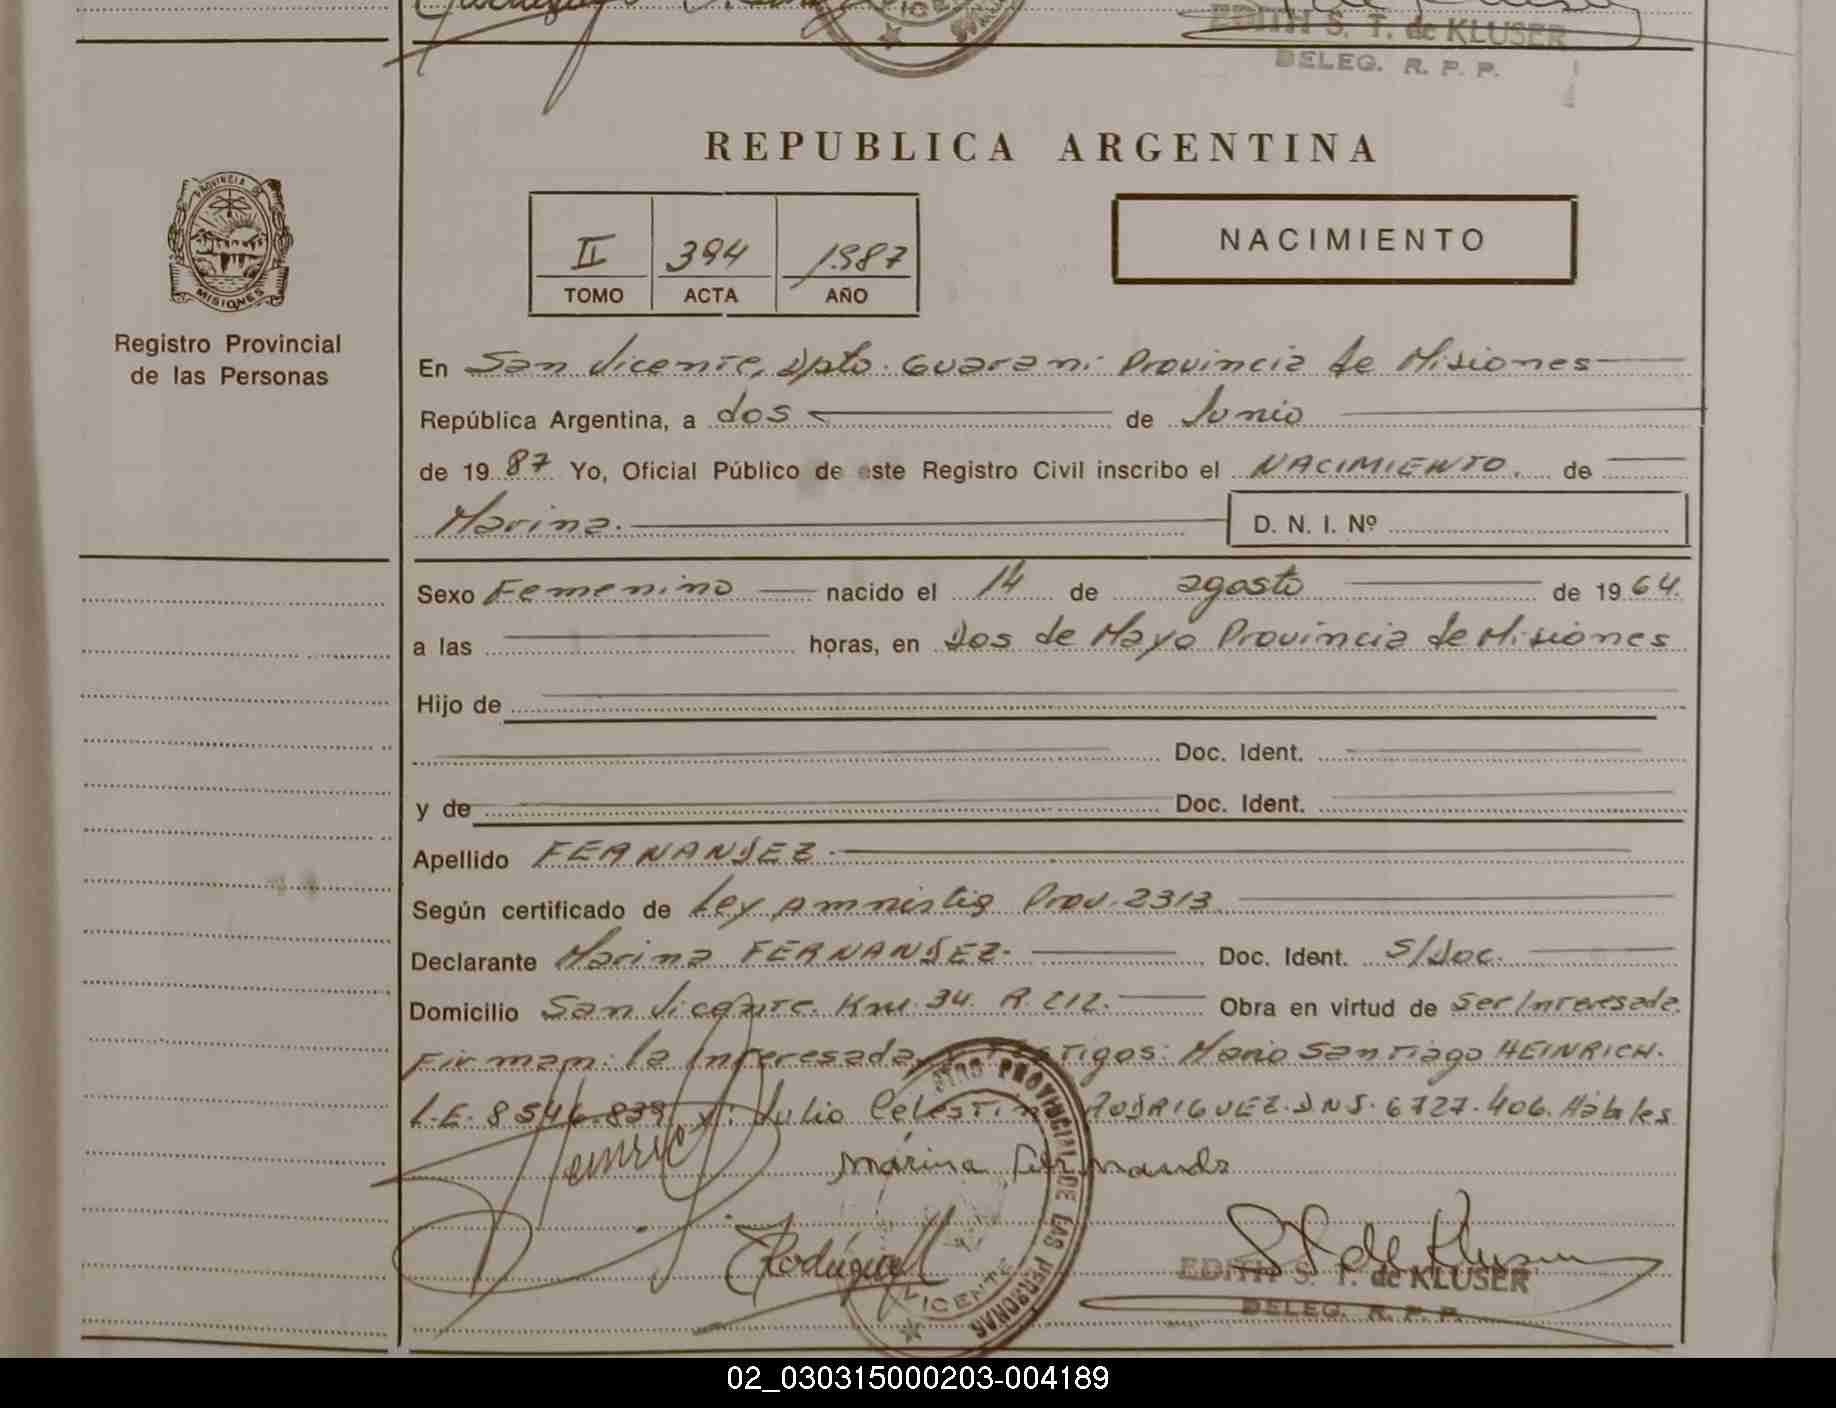 EDITH S. T. de KLUSER
DELEG. R. P. P.
REPUBLICA ARGENTINA
PROVINCIA DE
MISIONES
Registro Provincial
de las Personas
II 394 1987
TOMO ACTA AÑO
NACIMIENTO
En San Vicente, Dpto. Guarani Provincia de Misiones
República Argentina, a dos de Junio
de 1987 Yo, Oficial Público de este Registro Civil inscribo el NACIMIENTO. de
Marina. D. N. I. Nº
Sexo Femenino nacido el 14 de agosto de 1964.
a las horas, en Dos de Mayo Provincia de Misiones
Hijo de
Doc. Ident.
y de Doc. Ident.
Apellido FERNANDEZ.
Según certificado de Ley Amnistia Prov. 2313
Declarante Marina FERNANDEZ. Doc. Ident. S/Doc.
Domicilio San Vicente. Km. 34. R. 212. Obra en virtud de Ser Interesada.
Firman: la Interesada, Testigos: Mario Santiago HEINRICH.
L.E. 8546.839 y: Julio Celestino RODRIGUEZ. DNI. 6727.406. Hábiles
Márina Fernande
STRO PROVINCIAL DE LAS PERSONAS
ICENTE
EDITH S. T. de KLUSER
DELEG. R. P. P.
02_030315000203-004189